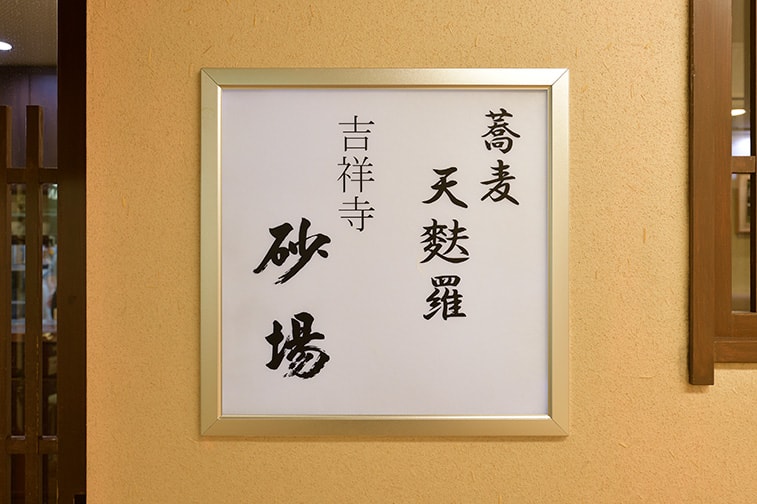 蕎麦
天麩羅
吉祥寺
砂場